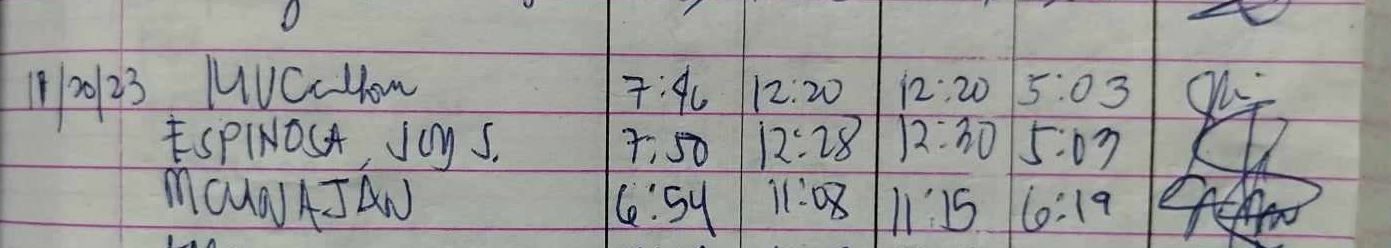 11/20/23 MVCalhom 7:46 12:20 12:20 5:03
ESPINOSA, Joy S. 7:50 12:28 12:30 5:03
6:54 11:08 11:15 6:19